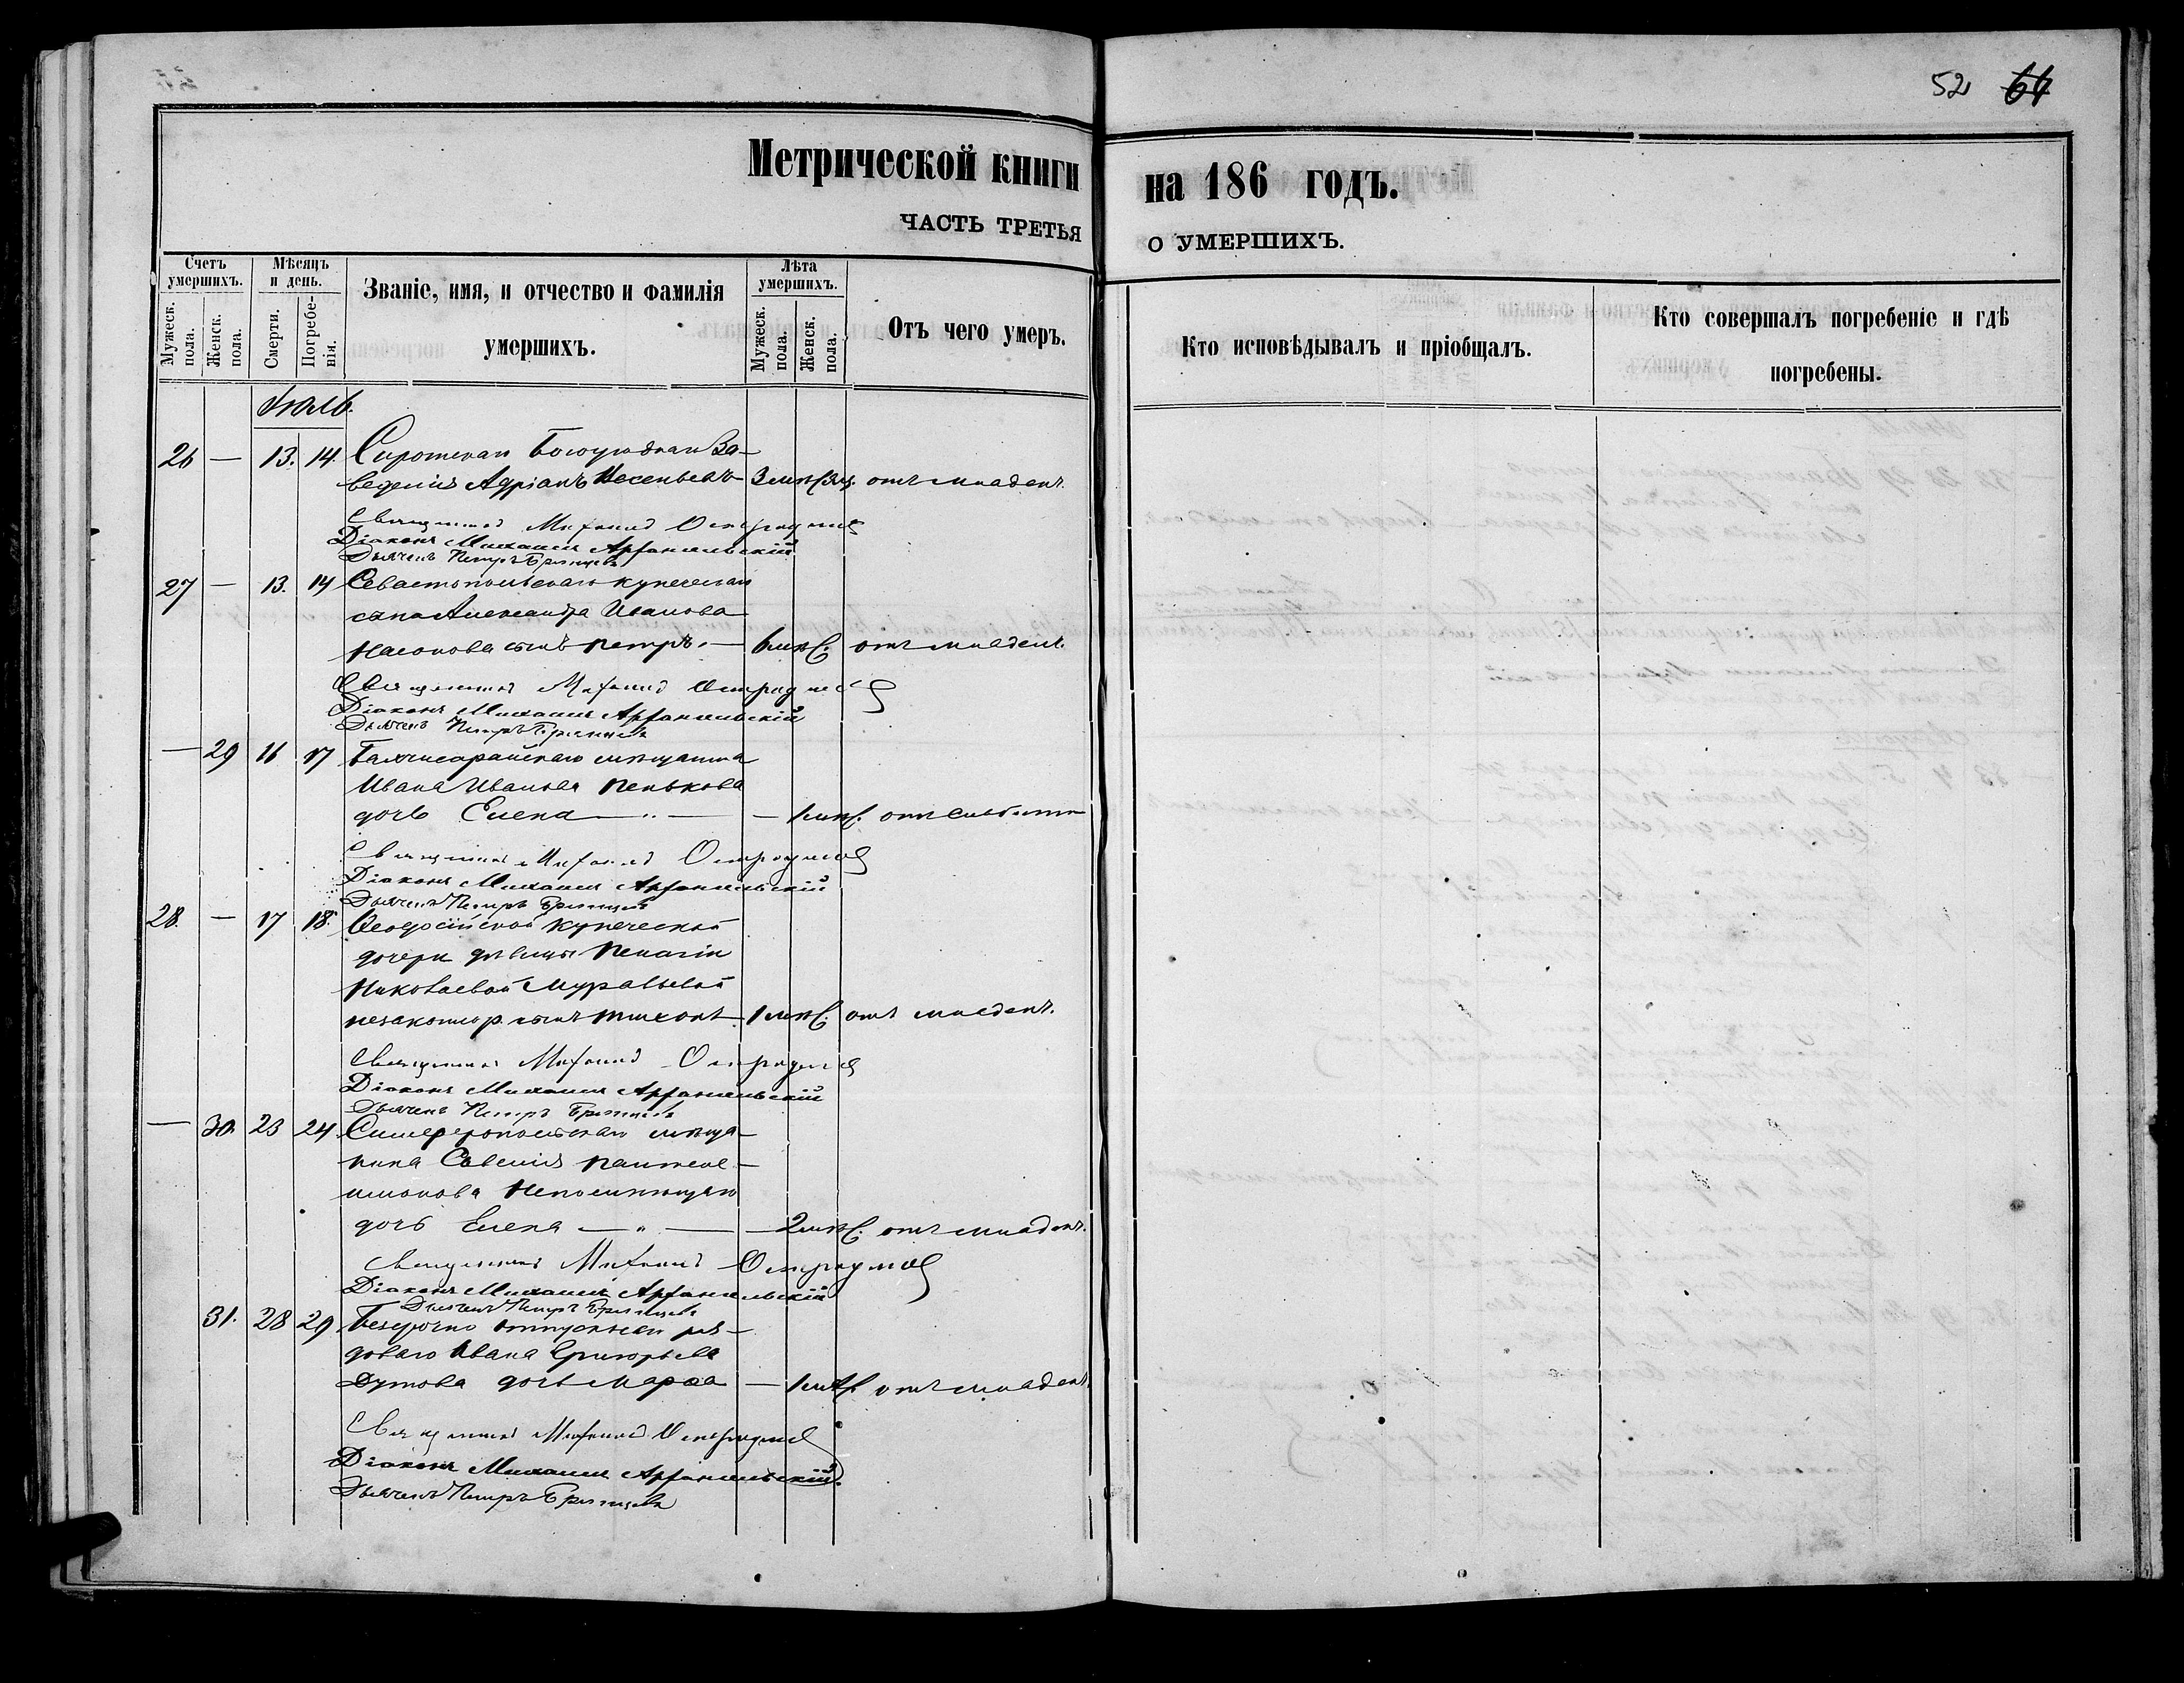 52 64
Метрической книги на 186 годъ.
ЧАСТЬ ТРЕТЬЯ О УМЕРШИХЪ.
Счетъ умершихъ.
Мужеск. пола.
Женск. пола.
Мѣсяцъ и день.
Смерти.
Погребенія.
Званіе, имя, и отчество и фамилія умершихъ.
Лѣта умершихъ.
Мужеск. пола.
Женск. пола.
Отъ чего умеръ.
Кто исповѣдывалъ и пріобщалъ.
Кто совершалъ погребеніе и гдѣ погребены.
Іюль.
26 — 13. 14. Сиротскаго Богоугоднаго За-
веденія Адріанъ 3 отъ младенч.
Священникъ Михаилъ
Діаконъ Михаилъ Архангельскій
Дьячекъ Петръ Брянцевъ
27 — 13. 14 Севастопольскаго купеческаго
сына Александра Иванова
Насонова сынъ Петръ. — 6 мѣс. отъ младенч.
Священникъ Михаилъ
Діаконъ Михаилъ Архангельскій
Дьячекъ Петръ Брянцевъ
— 29 16 17 Бахчисарайскаго мѣщанина
Ивана Иванова Пенькова
дочь Елена — " — — 1 мѣс. отъ слабости
Священникъ Михаилъ
Діаконъ Михаилъ Архангельскій
Дьячекъ Петръ Брянцевъ
28. — 17 18. Ѳеодосійской купеческой
дочери дѣвицы Пелагіи
Николаевой Муравьевой
незаконнор. сынъ Тихонъ 1 мѣс. отъ младенч.
Священникъ Михаилъ
Діаконъ Михаилъ Архангельскій
Дьячекъ Петръ Брянцевъ
— 30. 23 24 Симферопольскаго мѣща-
нина Савелія Пантеле-
имонова Непомнящаго
дочь Елена — " — — 2 мѣс. отъ младенч.
Священникъ Михаилъ
Діаконъ Михаилъ Архангельскій
Дьячекъ Петръ Брянцевъ
31. 28 29 Безсрочно отпускнаго ря-
доваго Ивана Григорьева
Дутова дочь Марѳа — 1 мѣс. отъ младенч.
Священникъ Михаилъ
Діаконъ Михаилъ Архангельскій.
Дьячекъ Петръ Брянцевъ